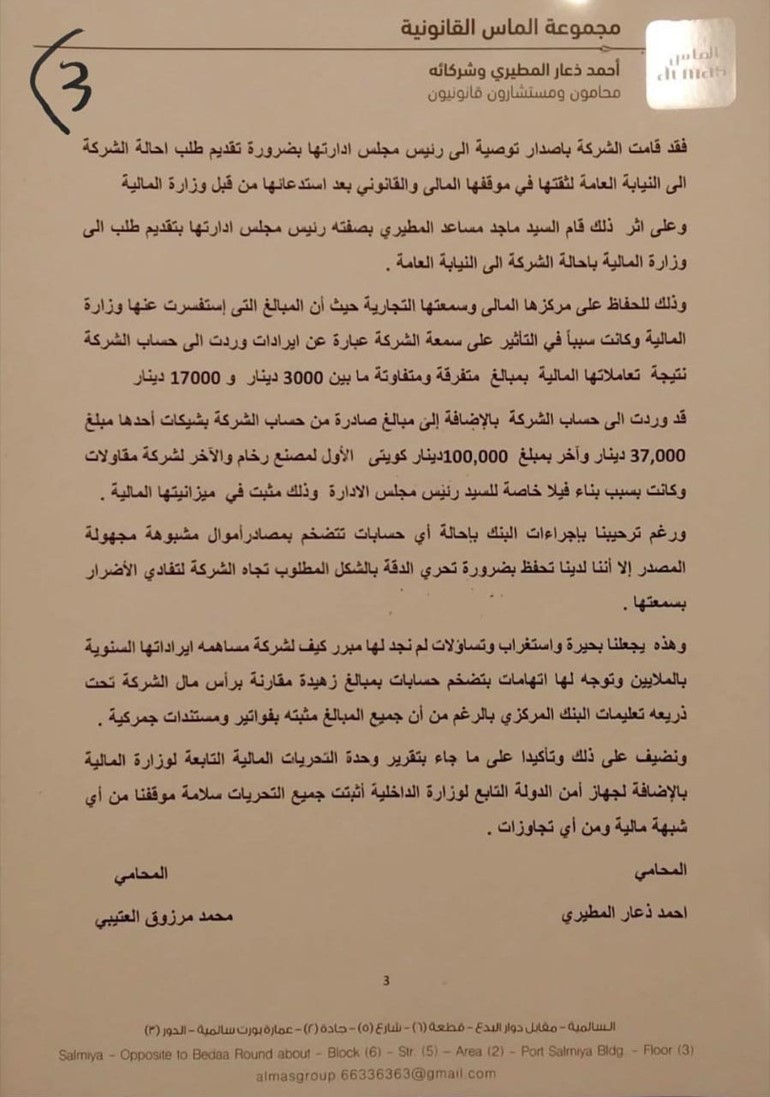 مجموعة الماس القانونية
أحمد ذعار المطيري وشركائه
محامون ومستشارون قانونيون
الماس
al mas
3
فقد قامت الشركة باصدار توصية الى رئيس مجلس ادارتها بضرورة تقديم طلب احالة الشركة
الى النيابة العامة لثقتها في موقفها المالى والقانوني بعد استدعائها من قبل وزارة المالية
وعلى اثر ذلك قام السيد ماجد مساعد المطيري بصفته رئيس مجلس ادارتها بتقديم طلب الى
وزارة المالية باحالة الشركة الى النيابة العامة .
وذلك للحفاظ على مركزها المالى وسمعتها التجارية حيث أن المبالغ التى إستفسرت عنها وزارة
المالية وكانت سبباً في التأثير على سمعة الشركة عبارة عن ايرادات وردت الى حساب الشركة
نتيجة تعاملاتها المالية بمبالغ متفرقة ومتفاوتة ما بين 3000 دينار و 17000 دينار
قد وردت الى حساب الشركة بالإضافة إلى مبالغ صادرة من حساب الشركة بشيكات أحدها مبلغ
37,000 دينار وآخر بمبلغ 100,000دينار كويتى الأول لمصنع رخام والآخر لشركة مقاولات
وكانت بسبب بناء فيلا خاصة للسيد رئيس مجلس الادارة وذلك مثبت في ميزانيتها المالية .
ورغم ترحيبنا بإجراءات البنك بإحالة أي حسابات تتضخم بمصادرأموال مشبوهة مجهولة
المصدر إلا أننا لدينا تحفظ بضرورة تحري الدقة بالشكل المطلوب تجاه الشركة لتفادي الأضرار
بسمعتها .
وهذه يجعلنا بحيرة واستغراب وتساؤلات لم نجد لها مبرر كيف لشركة مساهمه ايراداتها السنوية
بالملايين وتوجه لها اتهامات بتضخم حسابات بمبالغ زهيدة مقارنة برأس مال الشركة تحت
ذريعه تعليمات البنك المركزي بالرغم من أن جميع المبالغ مثبته بفواتير ومستندات جمركية .
ونضيف على ذلك وتأكيدا على ما جاء بتقرير وحدة التحريات المالية التابعة لوزارة المالية
بالإضافة لجهاز أمن الدولة التابع لوزارة الداخلية أثبتت جميع التحريات سلامة موقفنا من أي
شبهة مالية ومن أي تجاوزات .
المحامي المحامي
احمد ذعار المطيري محمد مرزوق العتيبي
3
السالمية - مقابل دوار البدع - قطعة (٦) - شارع (٥) - جادة (٢) - عمارة بورت سالمية - الدور (٣)
Salmiya - Opposite to Bedaa Round about - Block (6) - Str. (5) - Area (2) - Port Salmiya Bldg. - Floor (3)
almasgroup.66336363@gmail.com